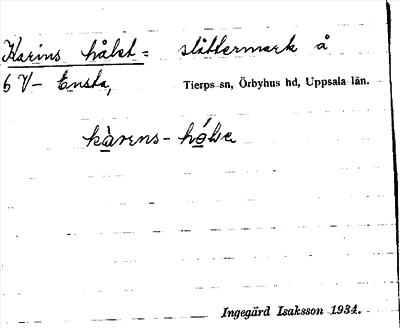 Karins hålet = slåttermark å
6 V- Ensta,
Tierps sn, Örbyhus hd, Uppsala län.
kàrens-
Ingegärd Isaksson 1934.